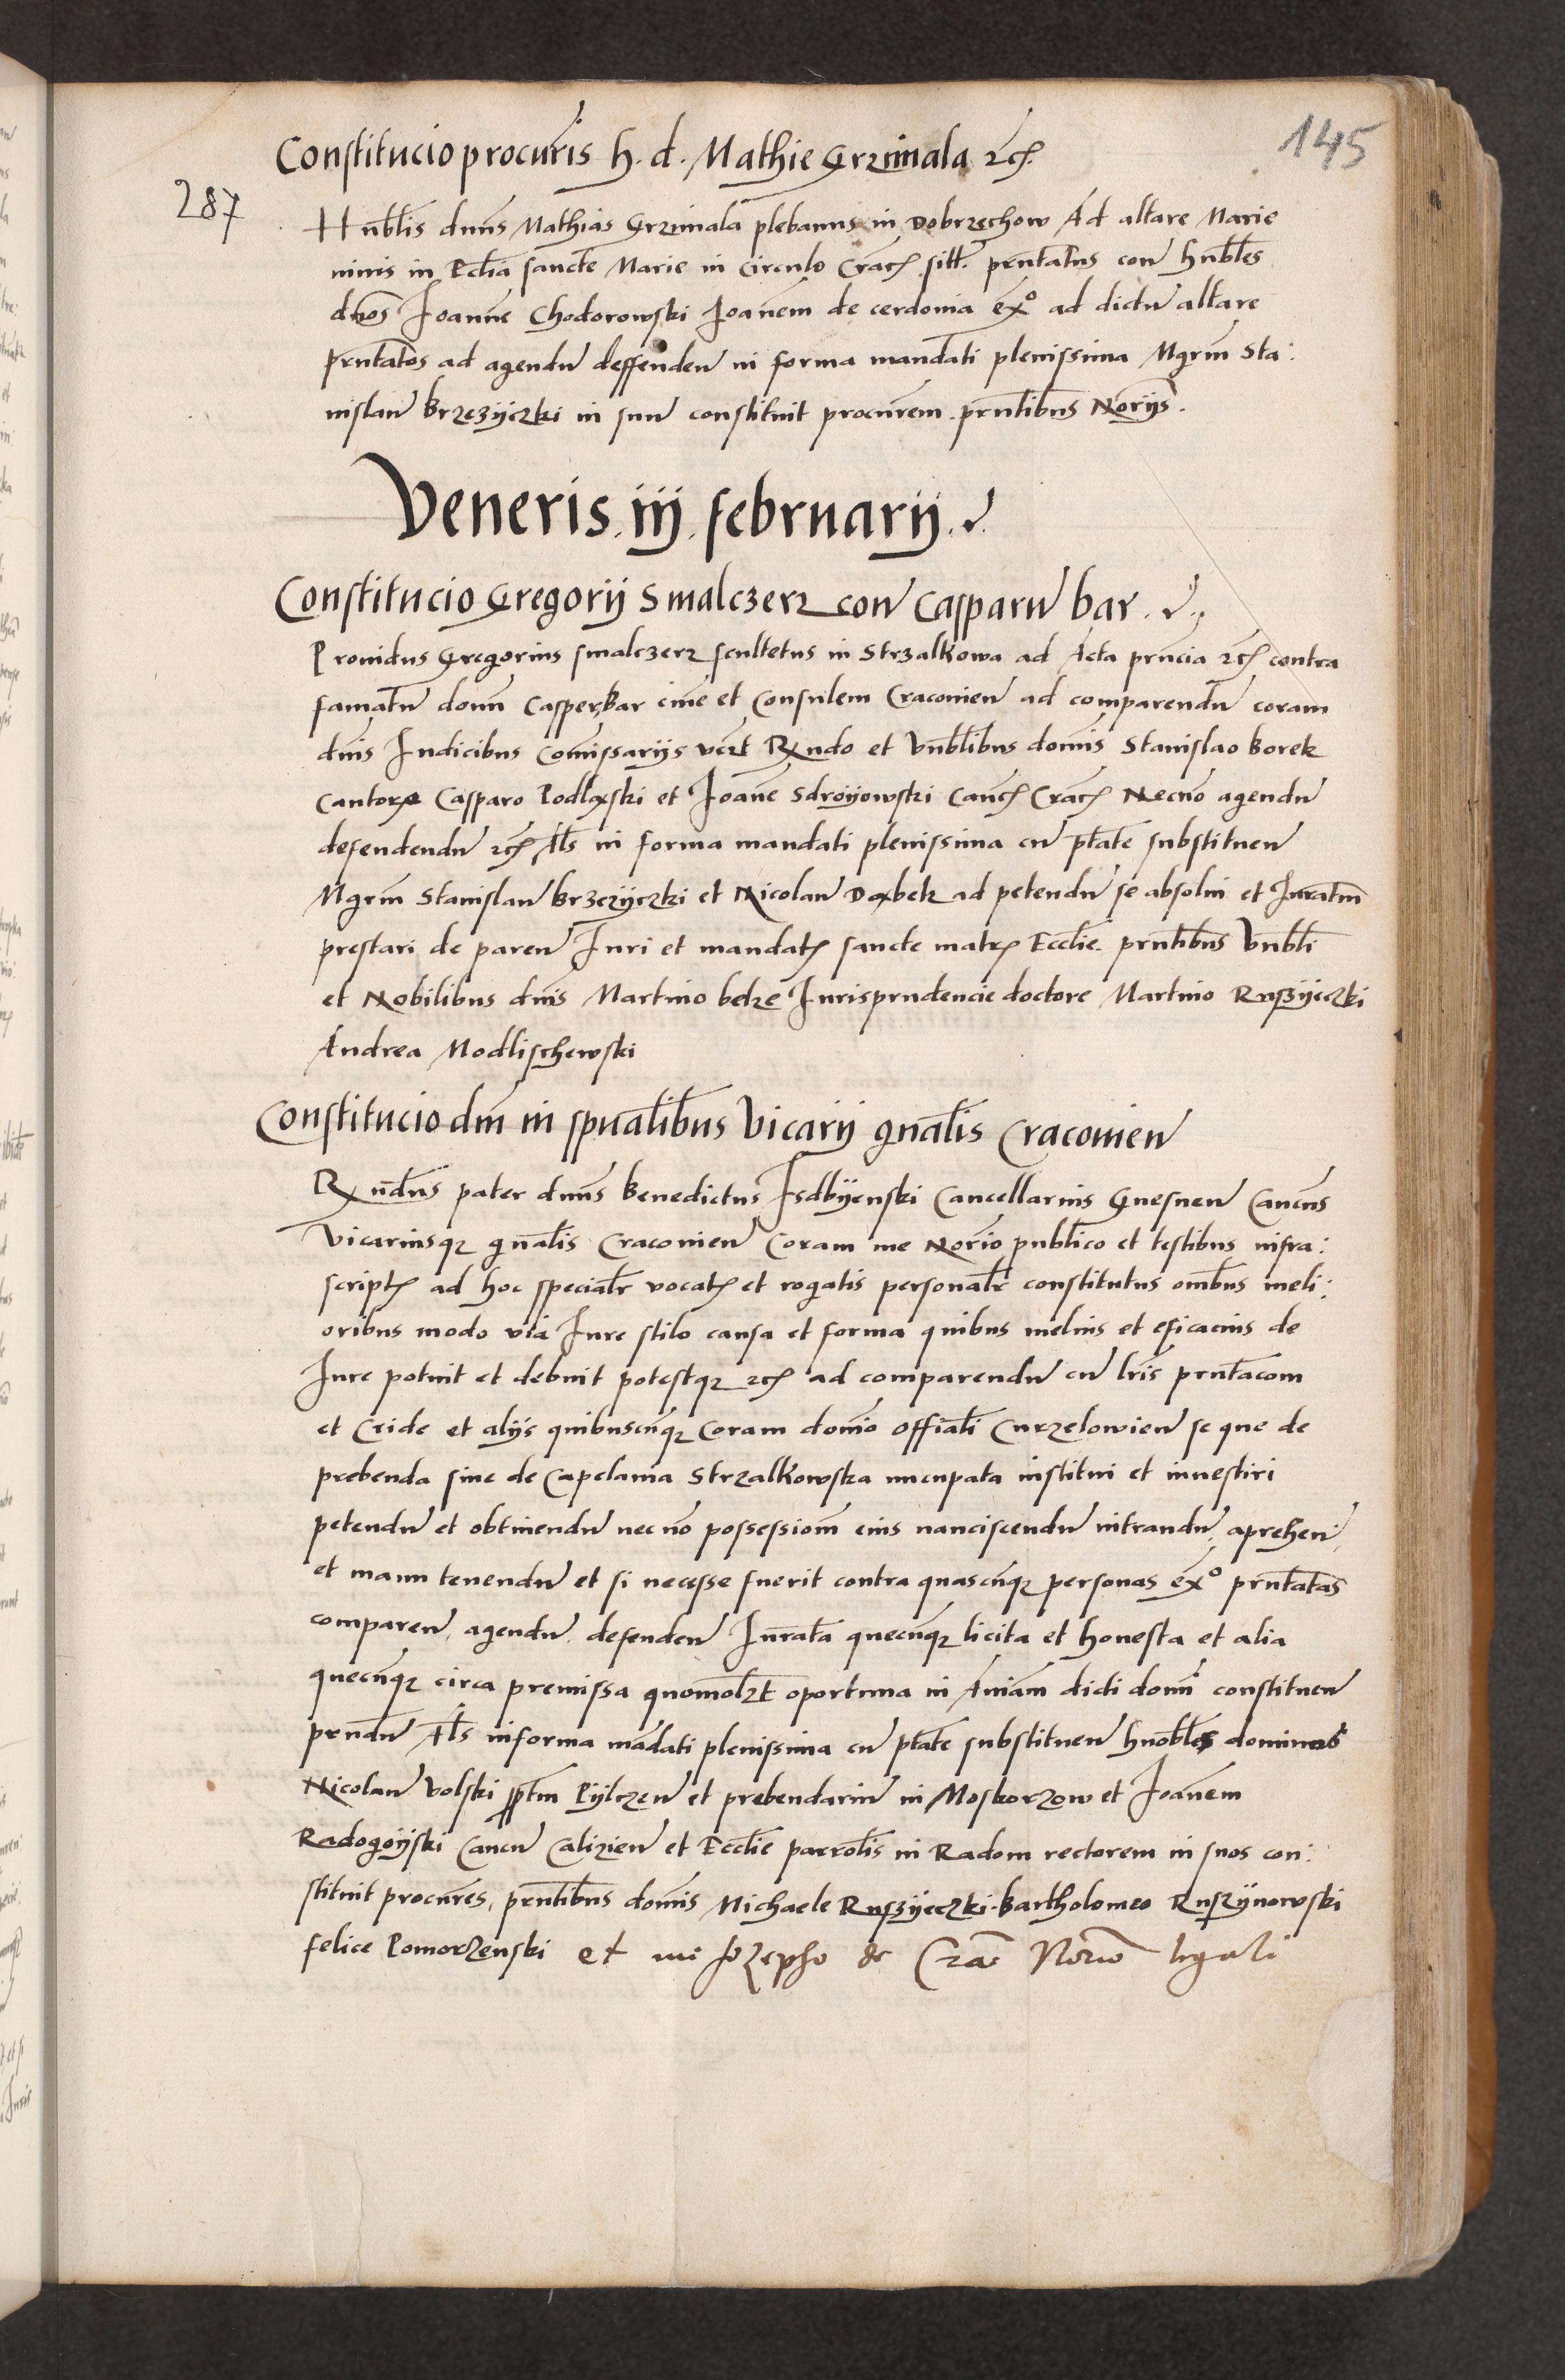 145
Constitucio procur̄is h. d. Mathie Grzimala etc.
287
Hn̄bl̄is dn̄us Mathias Grzimala plebanus in Dobrzechow Ad altare Marie
nivis in Ecl̄ia sancte Marie in Circulo Crac̄ sitt. pr̄ntatus con hn̄bl̄es
dn̄os Joanne Chodorowski Joanem de cerdonia ex̄o ad dictū altare
pr̄ntatos ad agendū deffendeñ in forma mandati plenissima Mgr̄m Sta:
nislaū Brzezijczki in suū constituit procur̄em pr̄ntibus Nōrijs.
Veneris .iij. februarij.
Constitucio Gregorij Smalczerz con Casparū bar.
Providus Gregorius smalczerz scultetus in Strzalkowa ad Acta pr̄ncia etc contra
famatū domn̄ Casper bar civ̄e et Consulem Cracovieñ ad comparendū coram
dn̄is Judicibus Com̄issarijs vcz̄t Rn̄do et Vn̄bl̄ibus domīs Stanislao Borek
Cantore Casparo Podlęski et Joan̄e Sdroijowski Can̄c Crac̄ Necnō agendū
defendendū etc Al̄s in forma mandati plenissima cū pt̄ate substitueñ
Mgr̄m Stanislaū Brzezijczki et Nicolaū Dąbek ad petendū se absolvi et Jurat̄m
prestari de pareñ Juri et mandat̄ sancte matr̄ Eccl̄ie. pr̄ntibus Vn̄bl̄i
et Nobilibus dn̄is Martino belze Jurisprudencie doctore Martino Ruszijeczki
Andrea Modlischewski
Constitucio dn̄i in sp̄ualibus Vicarij gn̄alis Cracovieñ
Rn̄dus pater dn̄us Benedictus Isdbijenski Cancellarius Gnesneñ Canc̄us
Vicariusqz gn̄alis Cracovieñ Coram me Nōrio publico et testibus infra:
script̄ ad hoc specialr̄ vocat̄ et rogatis personalr̄ constitutus om̄bus meli:
oribus modo via Jure stilo causa et forma quibus melius et eficacius de
Jure potuit et debuit potestqz etc ad comparendū cū lr̄is pr̄ntacom
et Cride et alijs quibuscūqz Coram domīo offial̄i Curzelowieñ se que de
prebenda sive de Capelania Strzalkowska nuncupata institui et investiri
petendū et obtinendū nec nō possessiom̄ eius nanciscendū intrandū, apreheñ,
et manu tenendū et si necesse fuerit contra quascūqz personas ex̄o pr̄ntatas
compareñ, agendū, defendeñ Jurāta quecūqz licita et honesta et alia
quecūqz circa premissa quomolz̄t oportuna in Aniam̄ dicti domn̄i constitueñ
pr̄ndū Al̄s in forma mādati plenissima cū pt̄ate substitueñ hn̄obl̄es dominos
Nicolaū Volski pp̄t̄m Pijlczeñ et prebendariū in Moskorzow et Joan̄em
Radogoijski Canc̄ū Calizieñ et Eccl̄ie parrol̄is in Radom rectorem in suos con:
stituit procur̄es, pr̄ntibus domīs Michaele Ruszijeczki Bartholomeo Ruszijnowski
felice Pomorzenski et me Jozepho de Cra͞c Nōrio legali